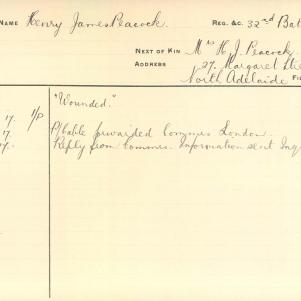 NAME Henry James Peacock. REG. &C. 32nd Bat
NEXT OF KIN Mrs H. J. Peacock
ADDRESS 27. Margaret
North Adelaide
17. 1/P "Wounded."
17. P/Cable forwarded Commrs London.
Reply from Commrs. Information sent Inq